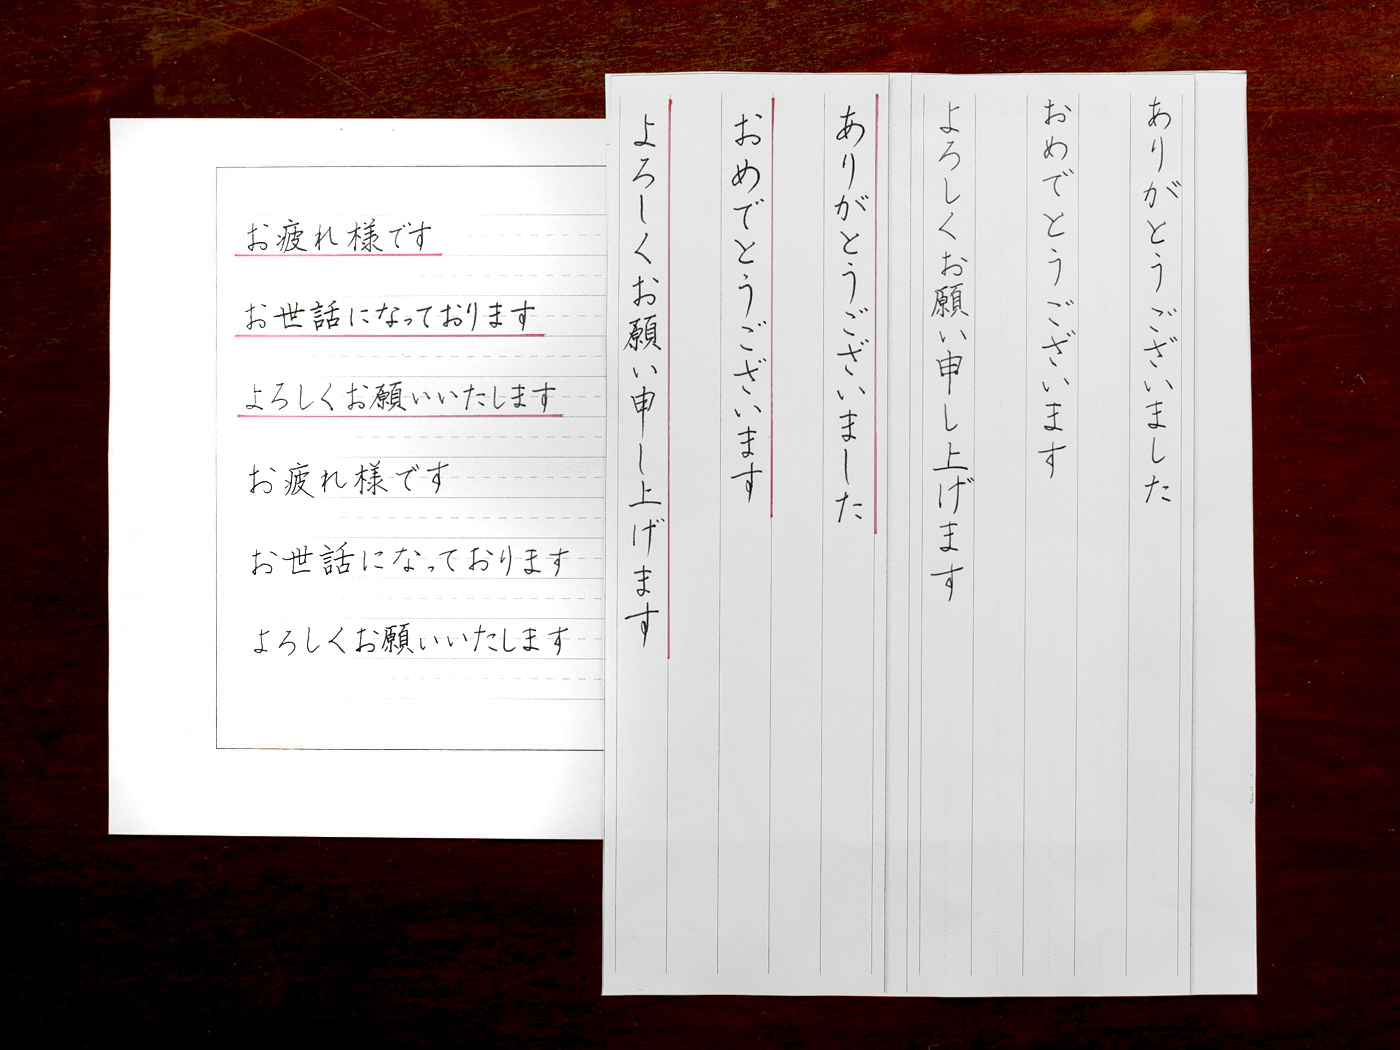 お疲れ様です
お世話になっております
よろしくお願いいたします
お疲れ様です
お世話になっております
よろしくお願いいたします
ありがとうございました
おめでとうございます
よろしくお願い申し上げます
ありがとうございました
おめでとうございます
よろしくお願い申し上げます